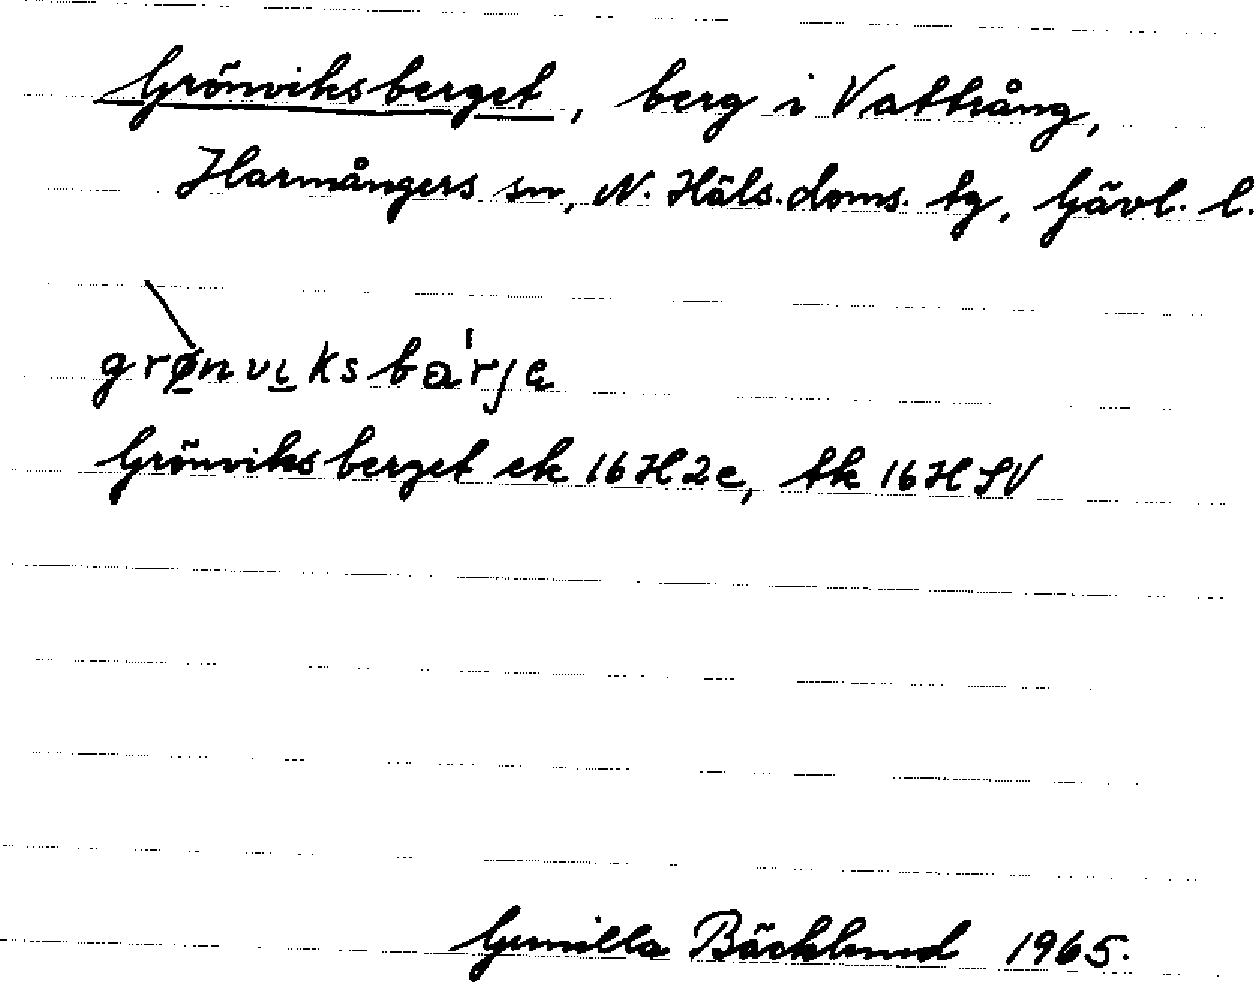 Grönviksberget, berg i Vattrång,
Harmångers sn, N. Häls. doms. tg, Gävl. l.
grønvıksba'rje
Grönviksberget ek 16H2c, tk 16H SV
Gunilla Bäcklund 1965.